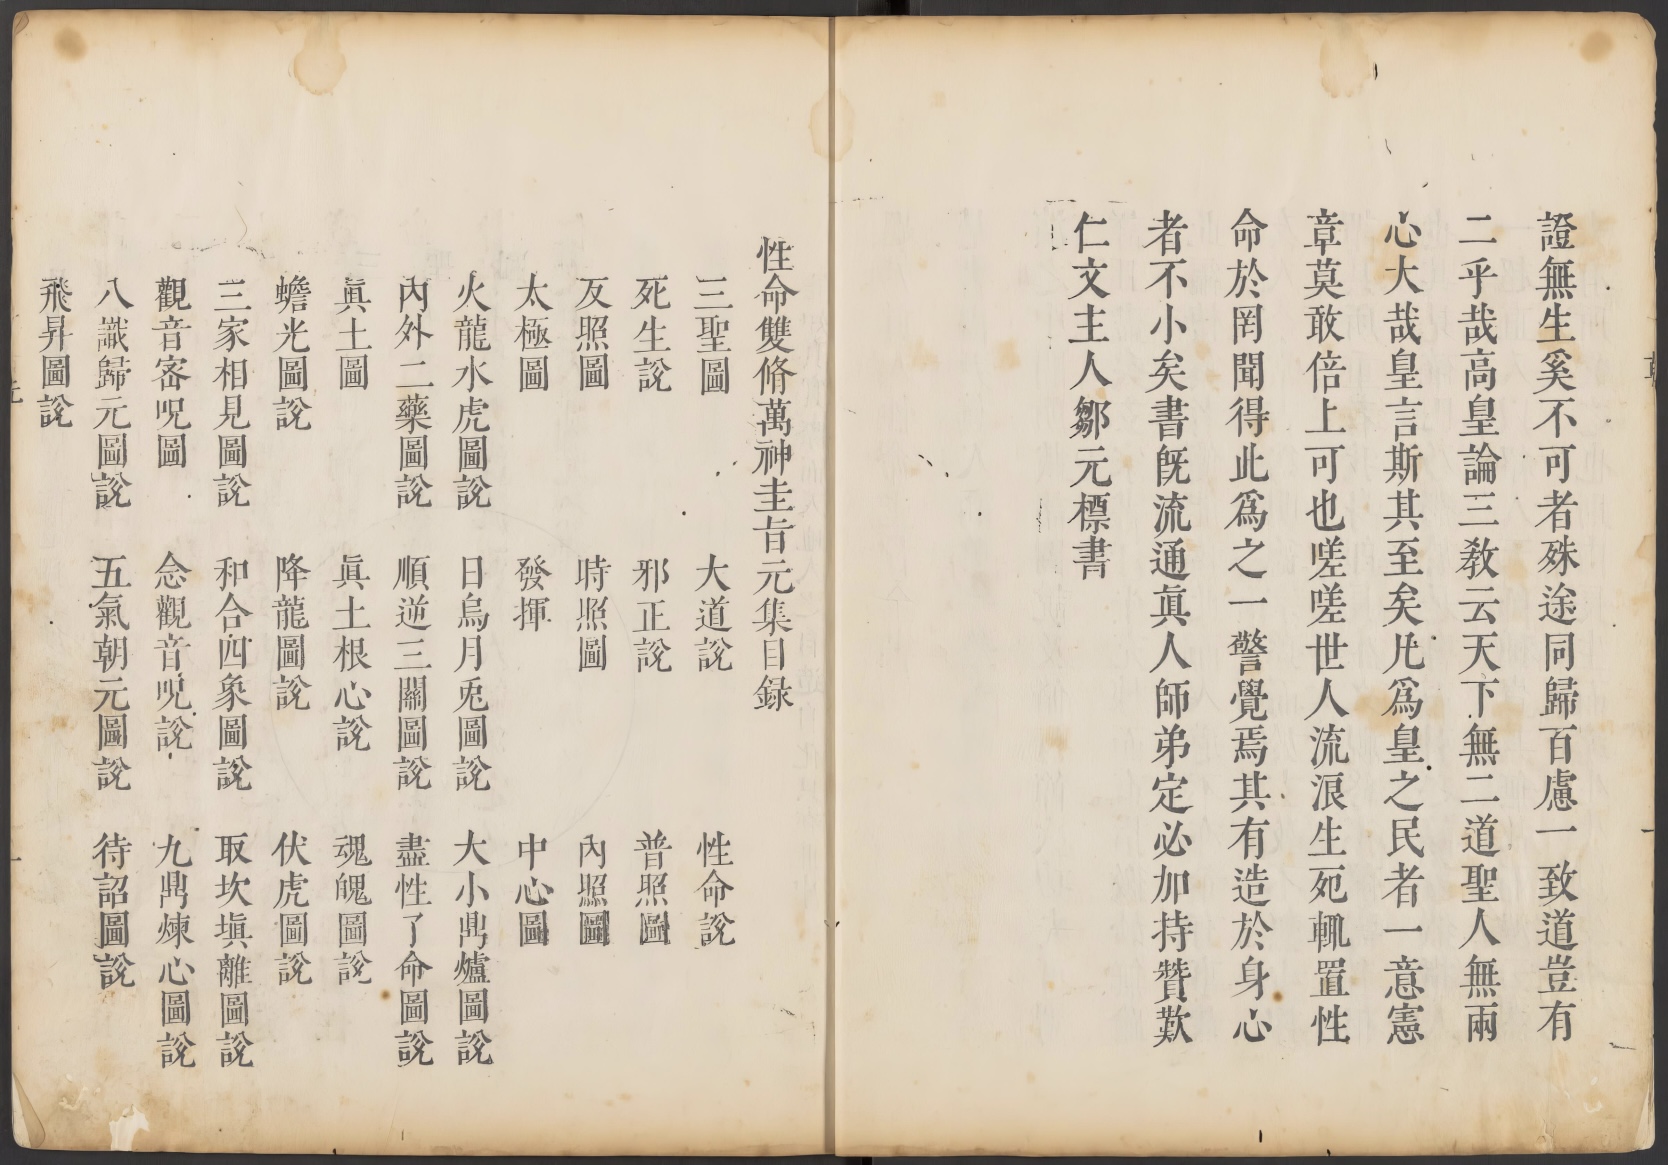 證無生奚不可者殊途同歸百慮一致道豈有
二乎哉高皇論三教云天下無二道聖人無兩
心大哉皇言斯其至矣凡為皇之民者一意憲
章莫敢倍上可也嗟嗟世人流浪生死輒置性
命於罔聞得此為之一警覺焉其有造於身心
者不小矣書旣流通眞人師弟定必加持贊歎
仁文主人鄒元標書
性命雙脩萬神圭旨元集目録
三聖圖 大道說 性命說
死生說 邪正說 普照圖
反照圖 時照圖 內照圖
太極圖 發揮 中心圖
火龍水虎圖說 日烏月兎圖說 大小鼎爐圖說
內外二藥圖說 順逆三關圖說 盡性了命圖說
眞土圖 眞土根心說 魂魄圖說
蟾光圖說 降龍圖說 伏虎圖說
三家相見圖說 和合四象圖說 取坎塡離圖說
觀音密呪圖 念觀音呪說 九鼎煉心圖說
八識歸元圖說 五氣朝元圖說 待詔圖說
飛昇圖說